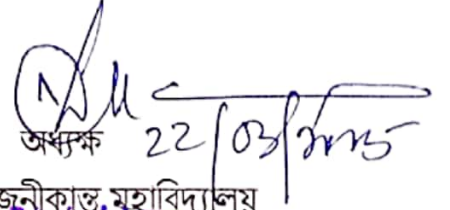 অধ্যক্ষ 22/03/
জনীকান্ত মহাবিদ্যালয়